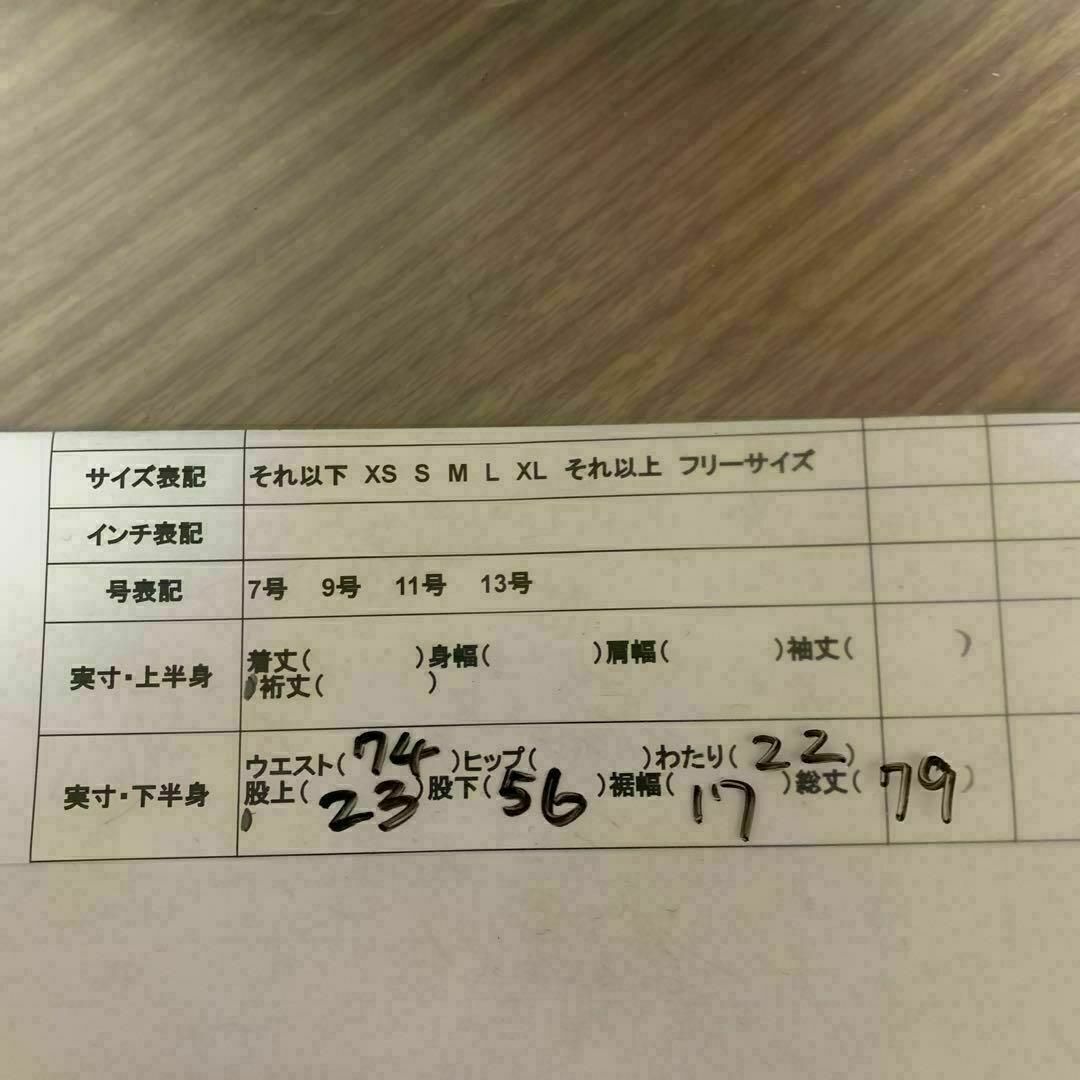 サイズ表記 それ以下 XS S M L XL それ以上 フリーサイズ
インチ表記
号表記 7号 9号 11号 13号
実寸・上半身 着丈( )身幅( )肩幅( )袖丈( )
裄丈( )
実寸・下半身 ウエスト( 74 )ヒップ( )わたり( 22 )
股上( 23 )股下( 56 )裾幅( 17 )総丈( 79 )